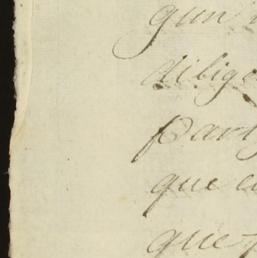 gun
dilig
part
que
que